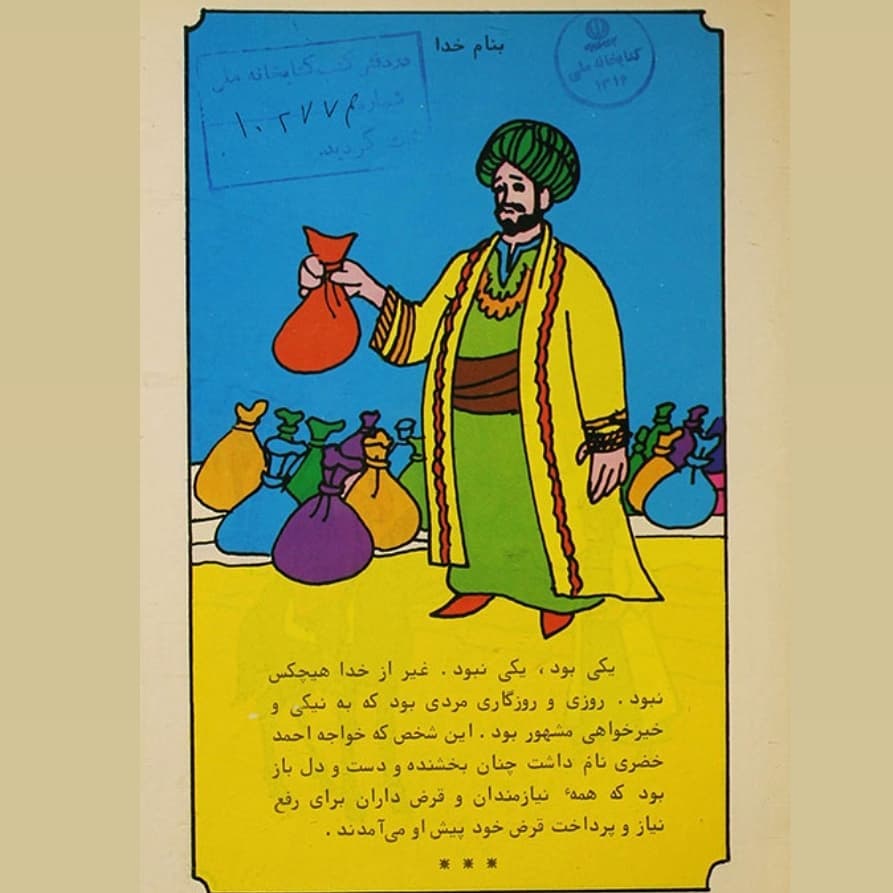 بنام خدا
در دفتر کتب کتابخانه ملی
شماره ۱۰۲۷۷م
ثبت گردید.
کتابخانه ملی
۱۳۱۶
یکی بود، یکی نبود. غیر از خدا هیچکس
نبود. روزی و روزگاری مردی بود که به نیکی و
خیرخواهی مشهور بود. این شخص که خواجه احمد
خضری نام داشت چنان بخشنده و دست و دل باز
بود که همهٔ نیازمندان و قرض داران برای رفع
نیاز و پرداخت قرض خود پیش او می‌آمدند.
* * *